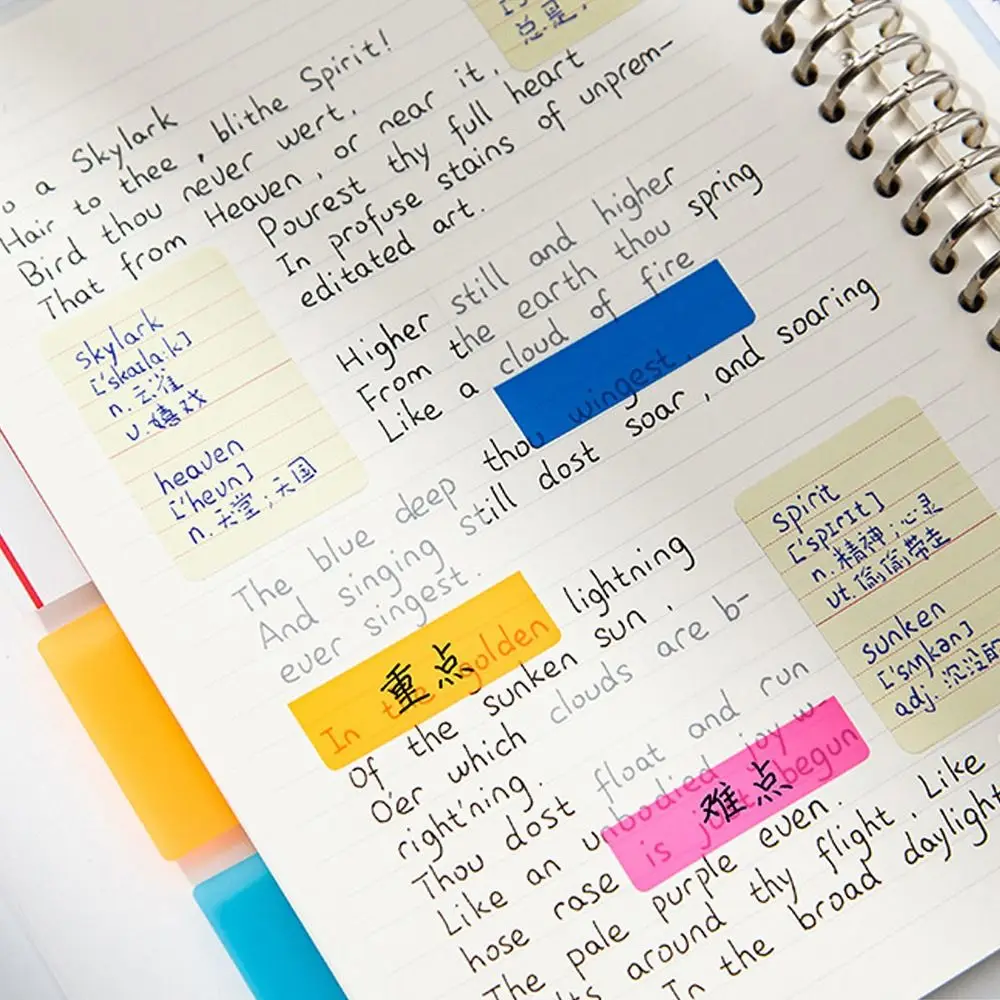 总是,
a Skylark
Hair to thee, blithe Spirit!
Bird thou never wert,
That from Heaven, or near it,
Pourest thy full heart
In profuse stains of unprem-
editated art.
skylark
['skaɪlɑːk]
n. 云雀
v. 嬉戏
heaven
['hevn]
n. 天堂;天国
Higher still and higher
From the earth thou spring
Like a cloud of fire
thou wingest,
The blue deep
And singing still dost soar, and soaring
ever singest.
spirit
['spɪrɪt]
n. 精神;心灵
vt. 偷偷带走
sunken
['sʌŋkən]
adj. 沉没的
重点
In the golden lightning
Of the sunken sun,
O'er which clouds are b-
right'ning.
Thou dost float and run
Like an unbodied joy w-
hose rase is just begun
难点
The pale purple even.
around thy flight. Like
In the broad daylight